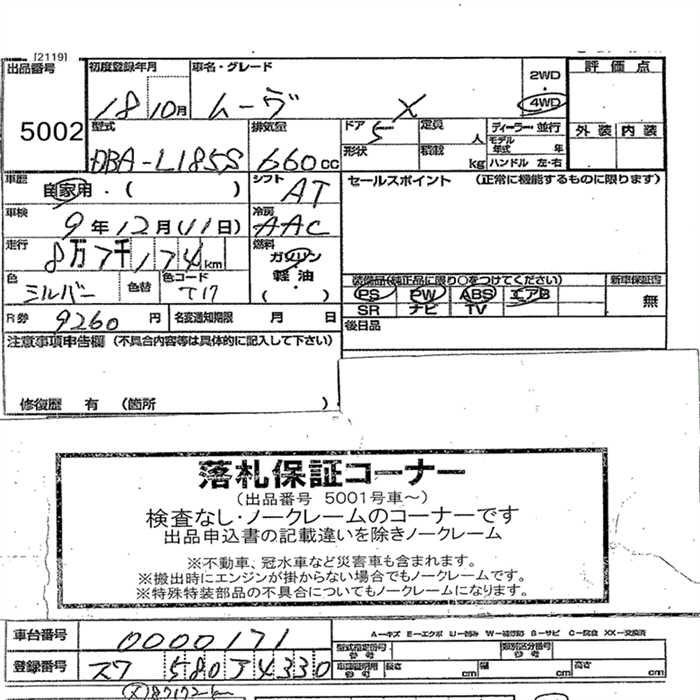 [2119]
出品番号 5002
初度登録年月 18 10月
車名・グレード ムーヴ X
2WD・4WD
評価点
外装 内装
型式 DBA-L185S
排気量 660cc
ドア 5 定員 人
形状 積載 kg
ディーラー・並行
モデル年式 年
ハンドル 左・右
車歴 自家用・( )
シフト AT
セールスポイント (正常に機能するものに限ります)
車検 9年12月(11日)
冷房 AAC
走行 8万7千174km
燃料 ガソリン・軽油 ( )
色 シルバー 色替 色コード T17
装備品(純正品に限り○をつけてください) 新車保証書
PS PW ABS エアB 無
SR ナビ TV
R券 9260円 名変通知期限 月 日
後日品
注意事項申告欄 (不具合内容等は具体的に記入して下さい)
修復歴 有 (箇所 )
落札保証コーナー
(出品番号 5001号車~)
検査なし・ノークレームのコーナーです
出品申込書の記載違いを除きノークレーム
※不動車、冠水車など災害車も含まれます。
※搬出時にエンジンが掛からない場合でもノークレームです。
※特殊特装部品の不具合についてもノークレームになります。
車台番号 0000171
A-キズ E-エクボ U-凹み W-補修跡 B-サビ C-腐食 XX-交換済
型式指定番号 参考 類別区分番号 参考
登録番号 580 34330
車庫証明用 参考 長さ cm 幅 cm 高さ cm